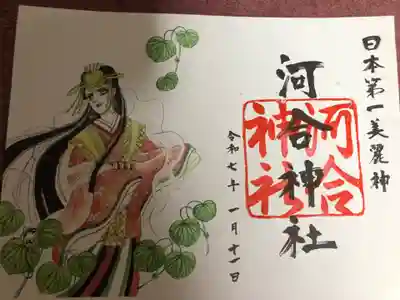 日本第一美麗神
河合神社
河合神社
令和七年 一月十一日